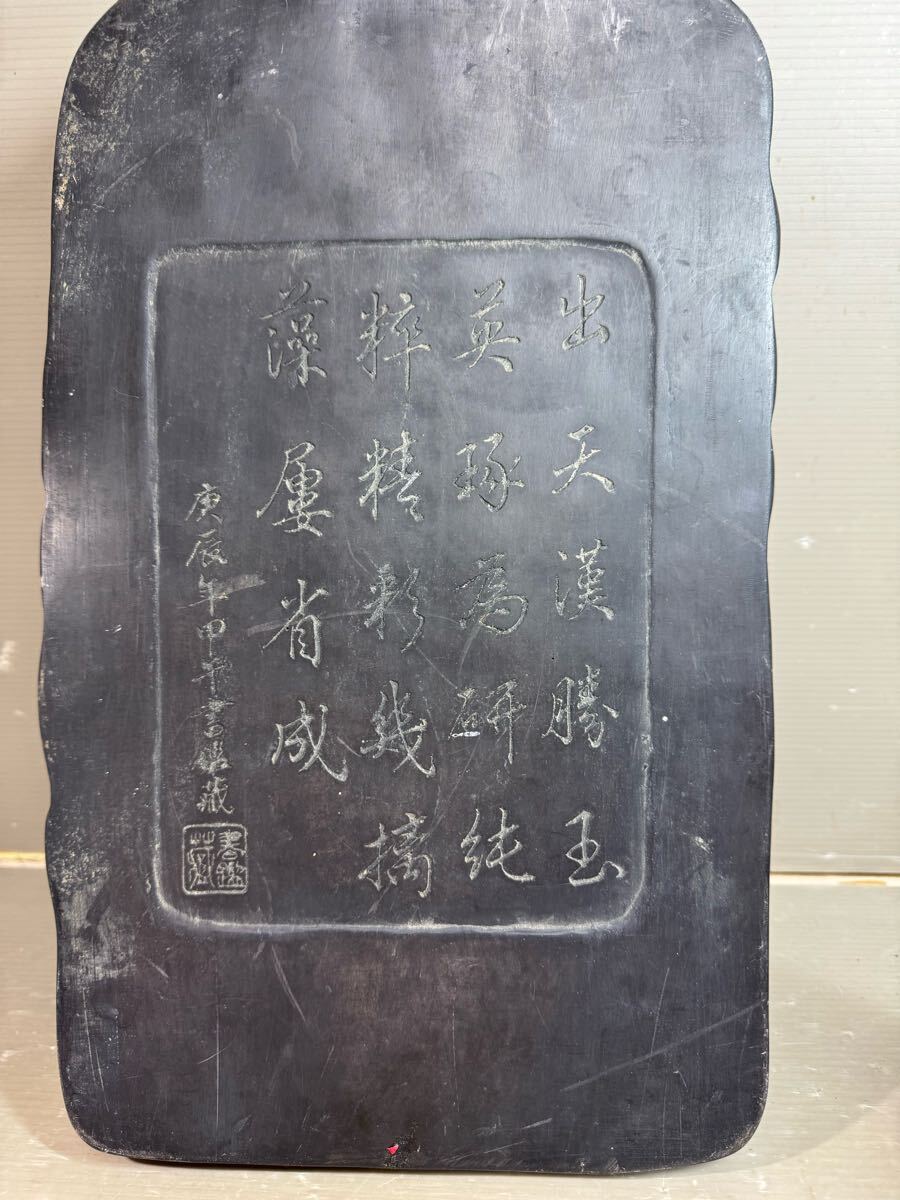 出天漢勝玉
英琢為研純
粹精彩幾摛
藻屢省成
庚辰年甲午書鑑藏